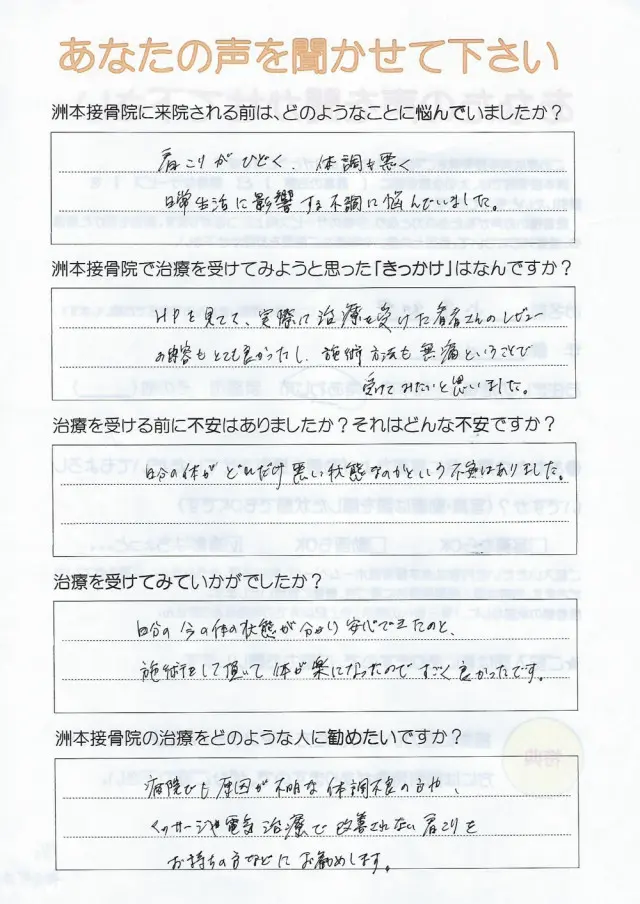 あなたの声を聞かせて下さい
洲本接骨院に来院される前は、どのようなことに悩んでいましたか?
肩こりがひどく、体調も悪く
日常生活に影響する不調に悩んでいました。
洲本接骨院で治療を受けてみようと思った「きっかけ」はなんですか?
HPを見てて、実際に治療を受けた患者さんのレビュー
の内容もとても良かったし、施術方法も無痛ということで
受けてみたいと思いました。
治療を受ける前に不安はありましたか?それはどんな不安ですか?
自分の体がどれだけ悪い状態なのかという不安はありました。
治療を受けてみていかがでしたか?
自分の今の体の状態が分かり安心できたのと、
施術をして頂いて体が楽になったのですごく良かったです。
洲本接骨院の治療をどのような人に勧めたいですか?
病院でも原因が不明な体調不良の方や、
マッサージや電気治療で改善されない肩こりを
お持ちの方などにお勧めします。